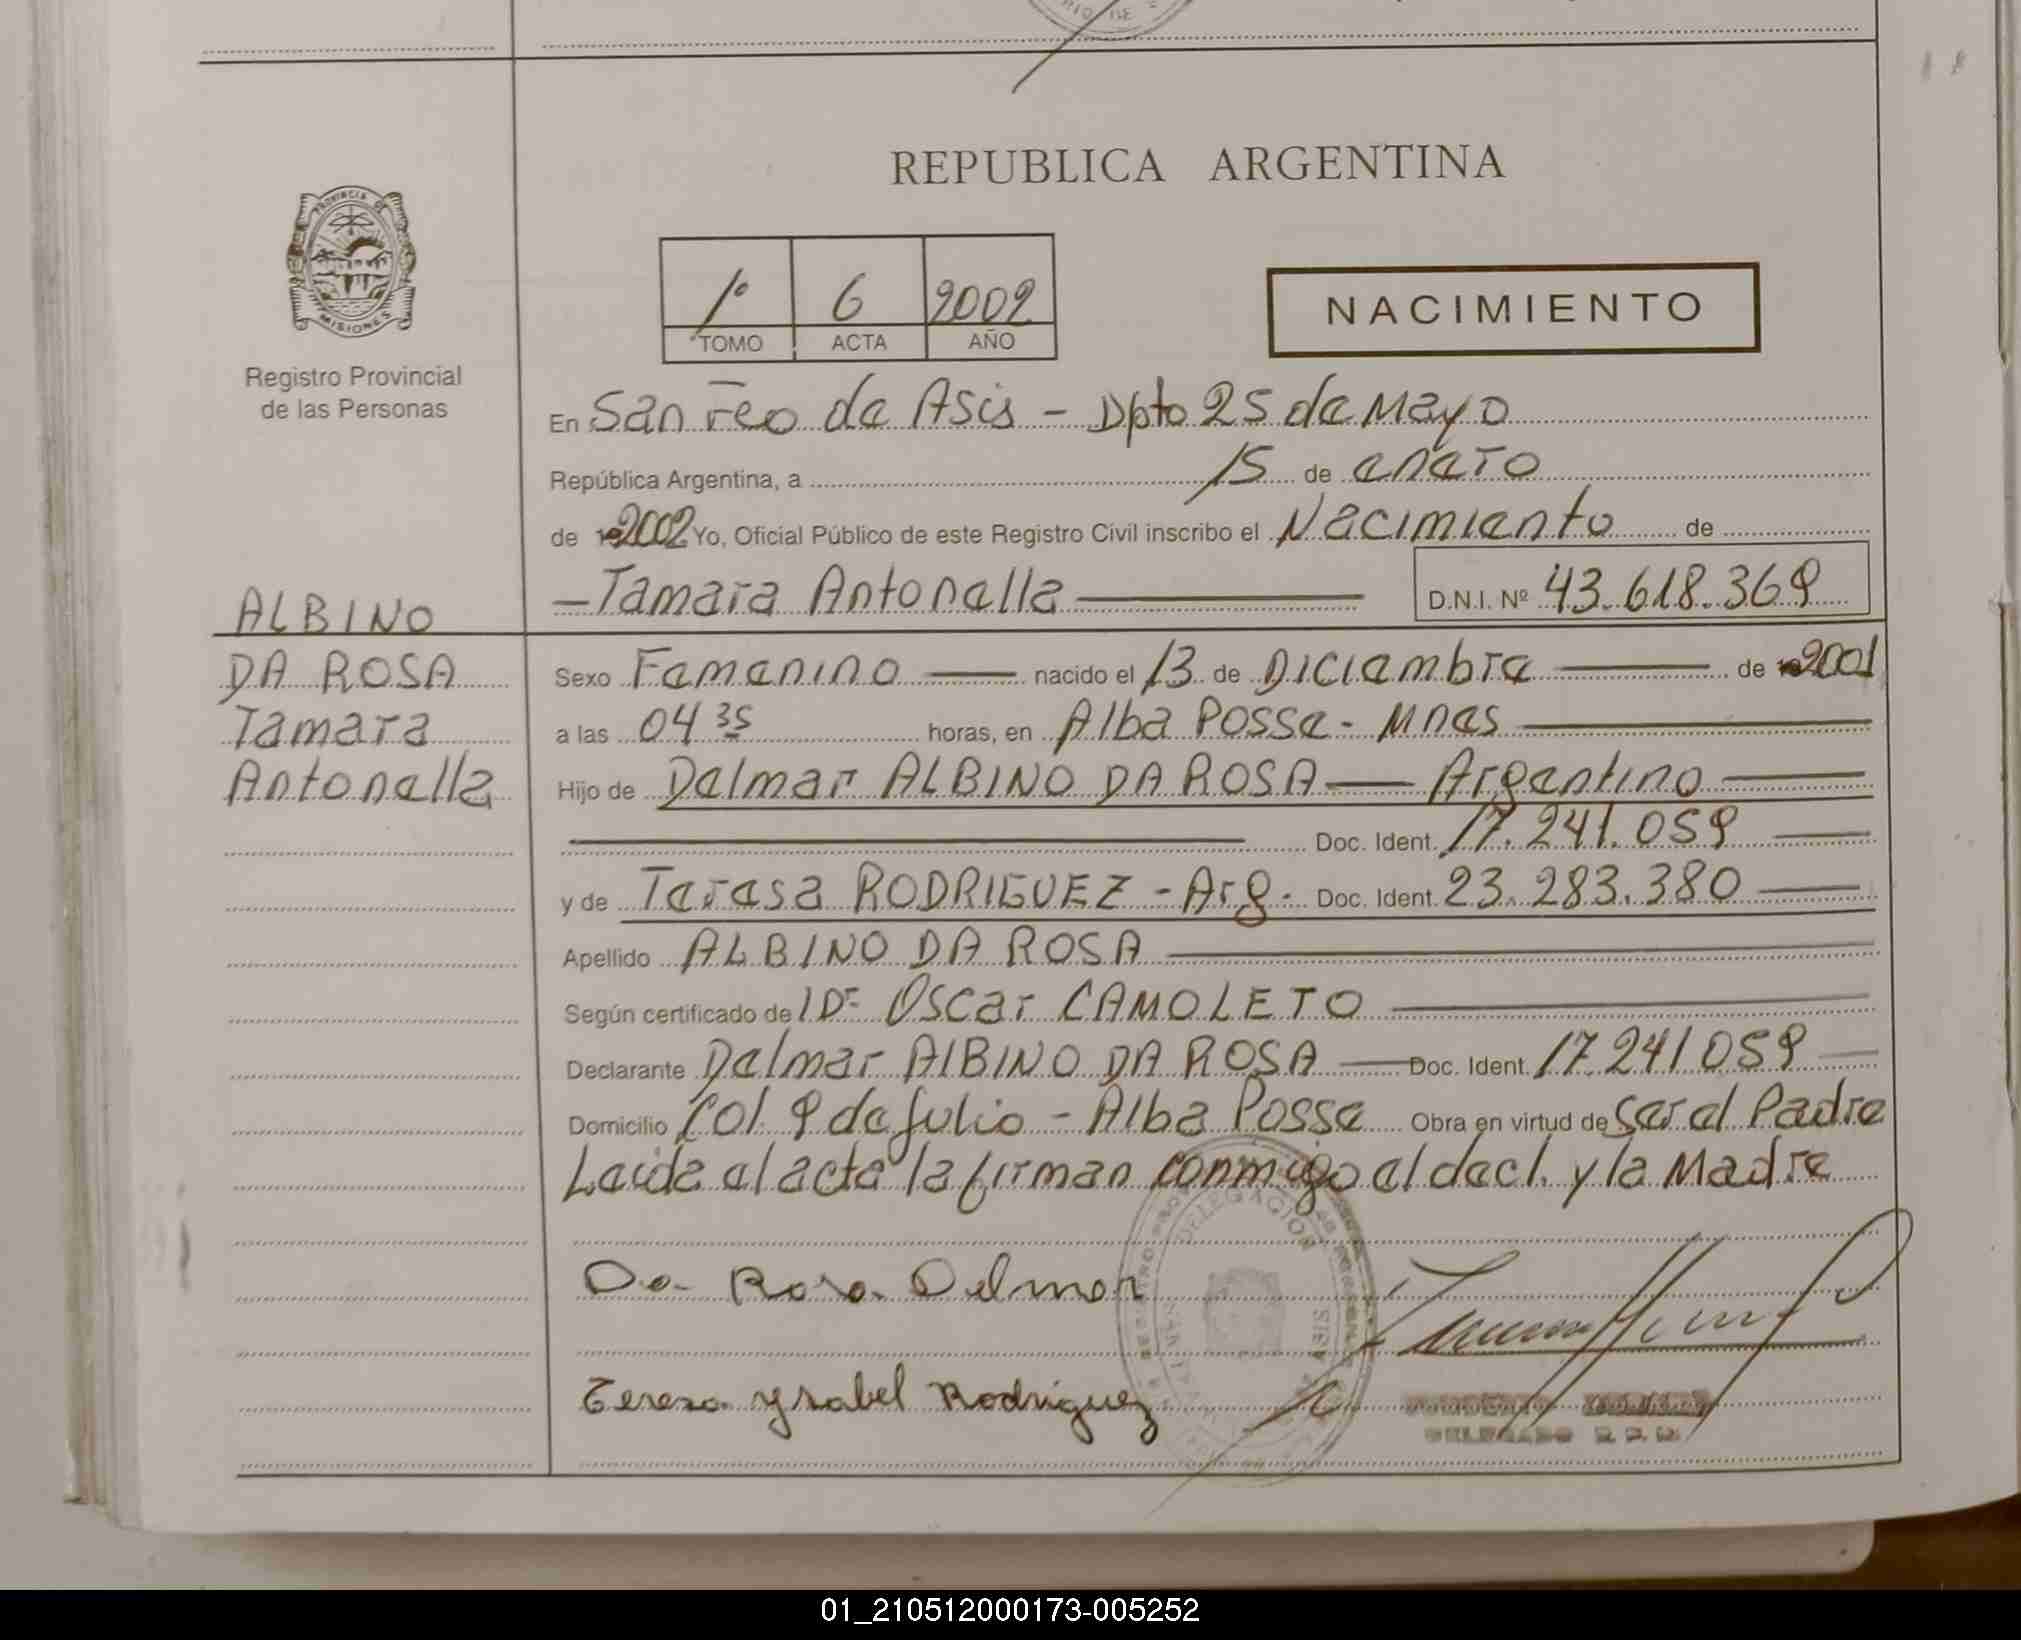 REPUBLICA ARGENTINA
PROVINCIA DE
MISIONES
Registro Provincial
de las Personas
1º 6 2002
TOMO ACTA AÑO
NACIMIENTO
En San Fco de Asis - Dpto 25 de Mayo
República Argentina, a 15 de enero
de 2002 Yo, Oficial Público de este Registro Civil inscribo el Nacimiento de
- Tamara Antonella D.N.I. Nº 43.618.369
ALBINO
DA ROSA
Tamara
Antonella
Sexo Femenino nacido el 13 de Diciembre de 2001
a las 04 35 horas, en Alba Posse - Mnes
Hijo de Delmar ALBINO DA ROSA — Argentino
Doc. Ident. 17.241.059
y de Teresa RODRIGUEZ - Arg. Doc. Ident. 23.283.380
Apellido ALBINO DA ROSA
Según certificado de Dr Oscar CAMOLETO
Declarante Delmar ALBINO DA ROSA Doc. Ident. 17.241059
Domicilio Col. 9 de Julio - Alba Posse Obra en virtud de Ser el Padre
Leida el acta la firman conmigo el decl. y la Madre
DELEGACION
Da Rosa Delmar
Teresa Ysabel Rodriguez
DELEGADO R.P.P.
01_210512000173-005252